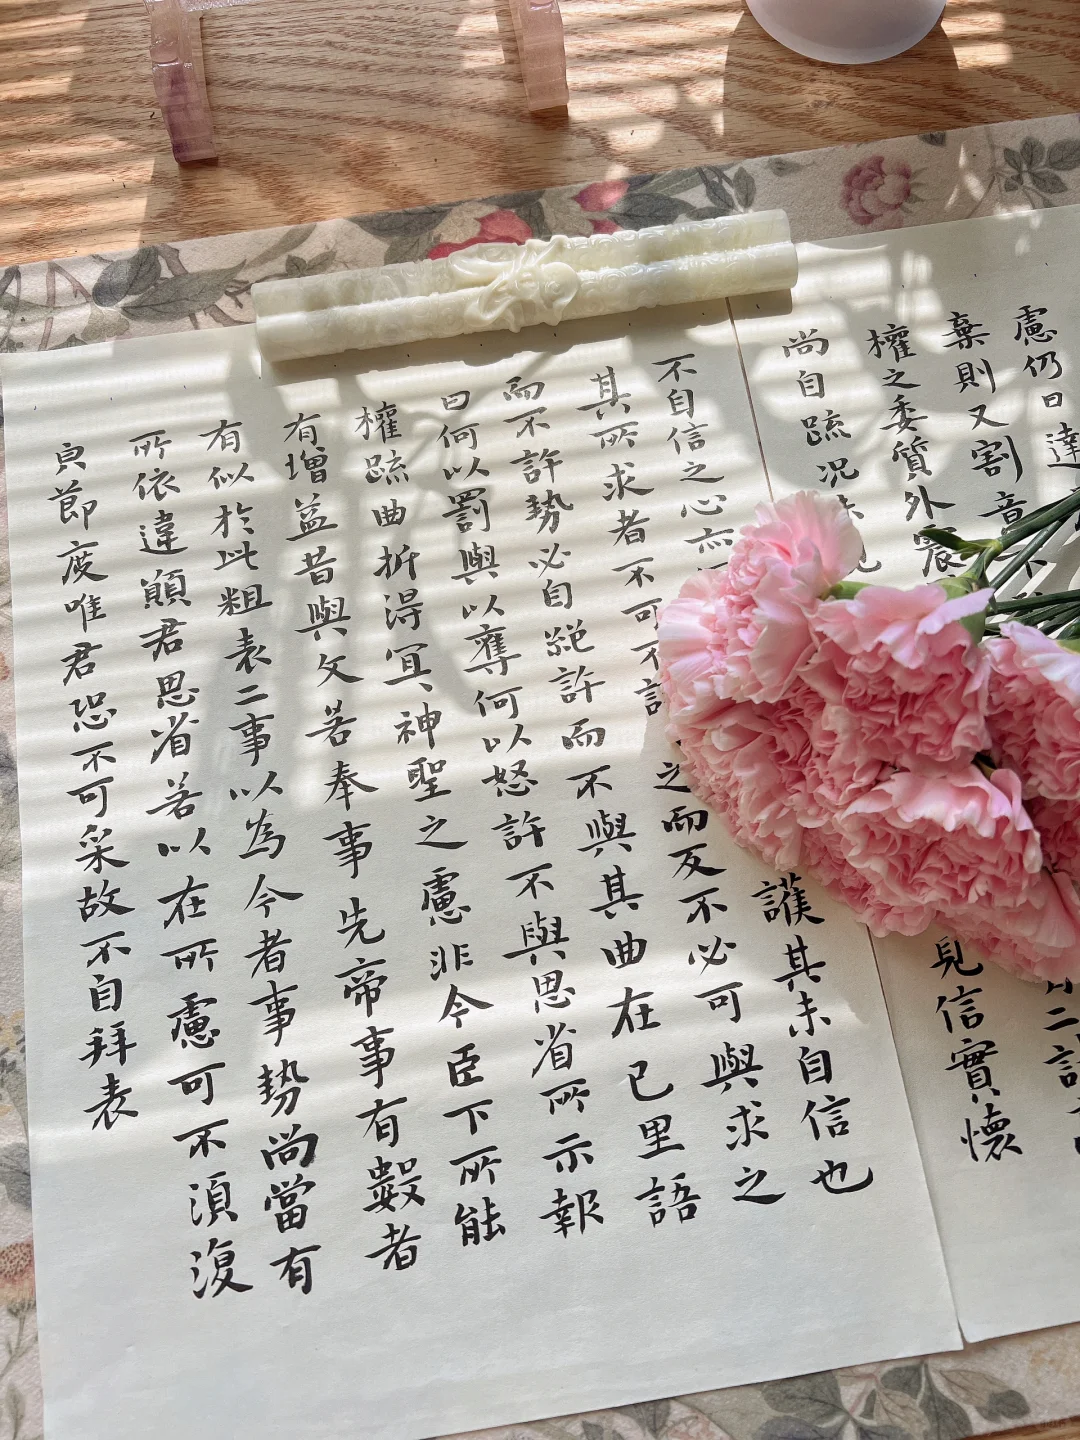 慮仍日達
棄則又割意不
權之委質外震
尚自疏况未見信實懷
不自信之心亦護其未自信也
其所求者不可不許之而反不必可與求之
而不許勢必自絕許而不與其曲在已里語
曰何以罰與以奪何以怒許不與思省所示報
權疏曲折得宜、神聖之慮非今臣下所能
有增益昔與文若奉事先帝事有數者
有似於此粗表二事以為今者事勢尚當有
所依違願君思省若以在所慮可不須復
皃節度唯君恐不可采故不自拜表